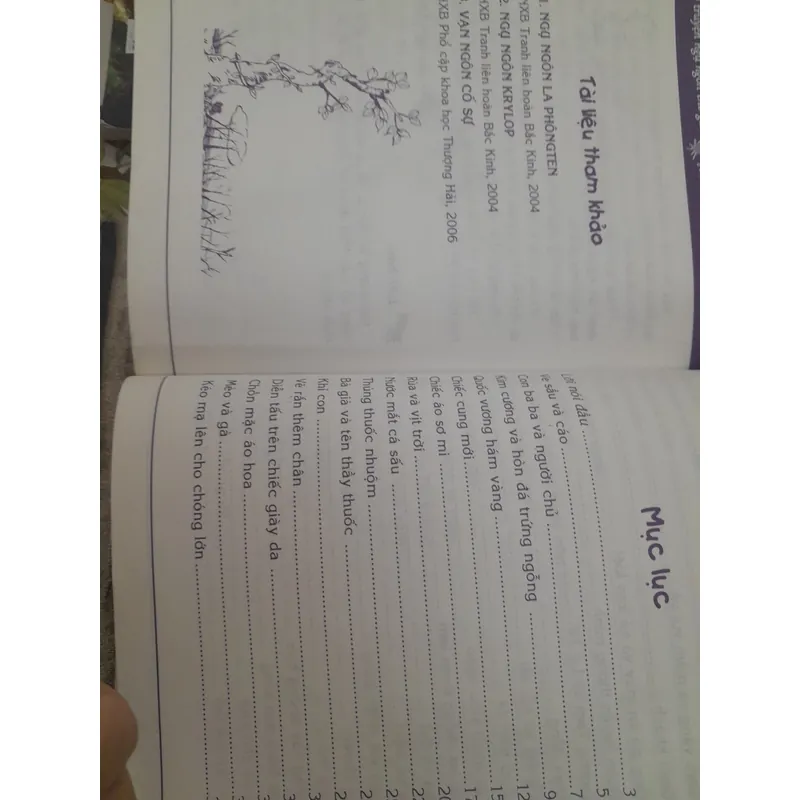 truyện ngụ ngôn
Tài liệu tham khảo
1. NGỤ NGÔN LA PHÔNGTEN
NXB Tranh liên hoàn Bắc Kinh, 2004
2. NGỤ NGÔN KRYLOP
NXB Tranh liên hoàn Bắc Kinh, 2004
3. VẠN NGÔN CỐ SỰ
NXB Phổ cập khoa học Thượng Hải, 2006
Mục lục
Lời nói đầu ........ 3
Ve sầu và cáo ........ 5
Con ba ba và người chủ ........ 7
Kim cương và hòn đá trứng ngỗng ........ 9
Quốc vương hám vàng ........ 12
Chiếc cung mới ........ 15
Chiếc áo sơ mi ........ 17
Rùa và vịt trời ........ 20
Nước mắt cá sấu ........ 22
Thùng thuốc nhuộm ........ 2
Bà già và tên thầy thuốc ........ 2
Khỉ con ........ 2
Vẽ rắn thêm chân ........ 3
Diễn tấu trên chiếc giày da ........ 3
Chồn mặc áo hoa ........ 3
Mèo và gà ........ 3
Kéo mạ lên cho chóng lớn ........